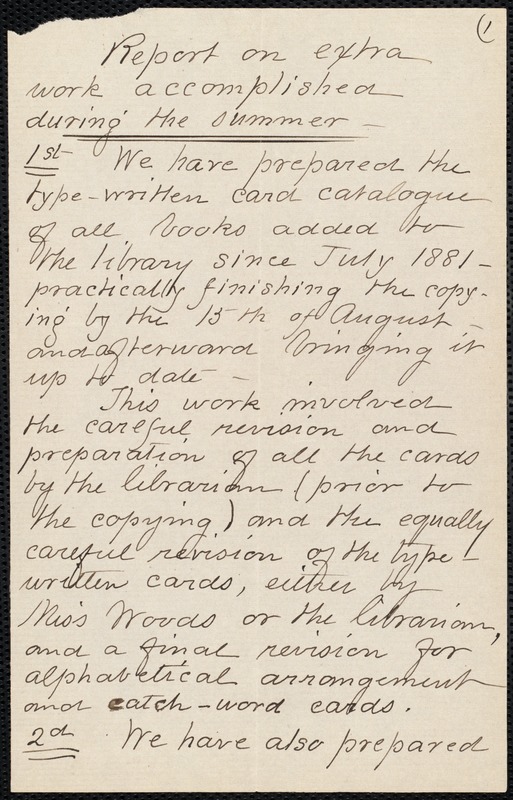 (1
Report on extra
work accomplished
during the summer –
1st We have prepared the
type-written card catalogue
of all books added to
the library since July 1881 –
practically finishing the copy-
ing by the 15th of August –
and afterward bringing it
up to date –
This work involved
the careful revision and
preparation of all the cards
by the librarian (prior to
the copying) and the equally
careful revision of the type-
written cards, either by
Miss Woods or the librarian,
and a final revision for
alphabetical arrangement
and catch-word cards.
2d We have also prepared